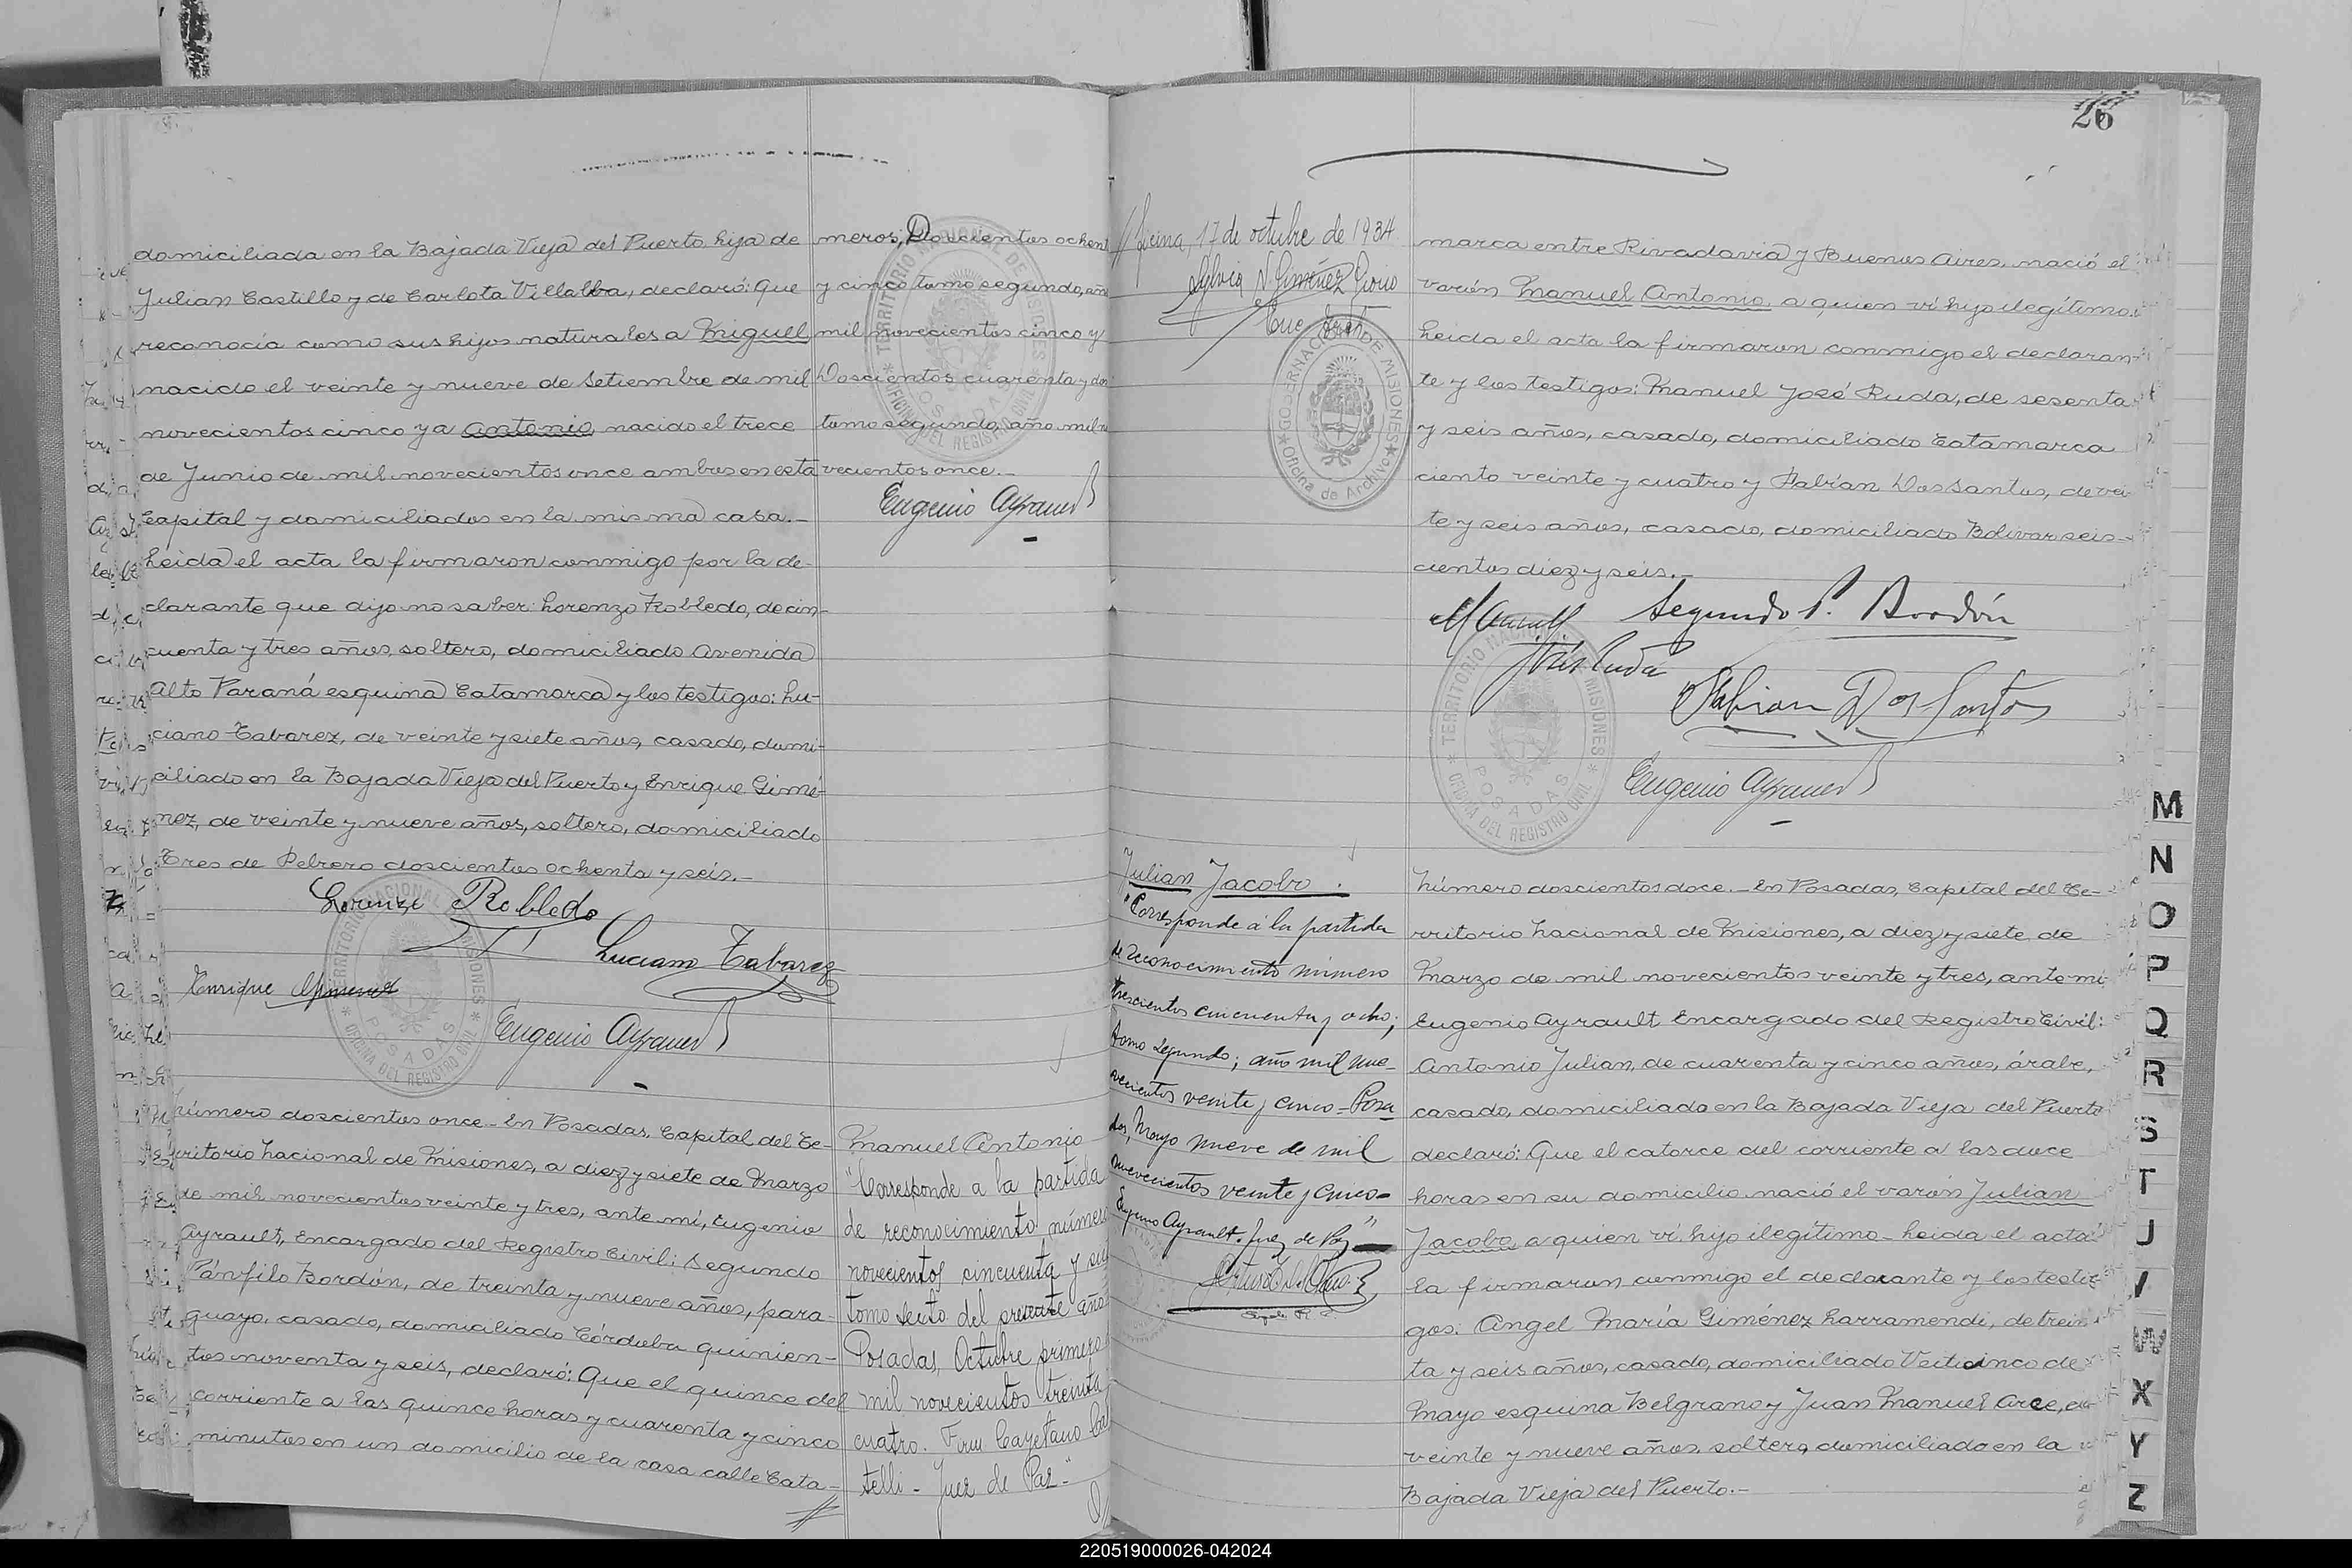 26
domiciliada en la Bajada Vieja del Puerto, hija de
Julian Castillo y de Carlota Villalba, declaró: Que
reconocía como sus hijos naturales a Miguel,
nacido el veinte y nueve de Setiembre de mil
novecientos cinco y a Antonio, nacido el trece
de Junio de mil novecientos once ambos en esta
Capital y domiciliados en la misma casa.-
Leida el acta la firmaron conmigo por la de-
clarante que dijo no saber: Lorenzo Robledo, de cin-
cuenta y tres años, soltero, domiciliado Avenida
Alto Paraná esquina Catamarca y los testigos: Lu-
ciano Tabarez, de veinte y siete años, casado, domi-
ciliado en la Bajada Vieja del Puerto y Enrique Gimé-
nez, de veinte y nueve años, soltero, domiciliado
Tres de Febrero doscientos ochenta y seis.-
Lorenzo Robledo
Luciano Tabarez
Enrique Gimenez
Eugenio Ayrault
meros; Doscientos ochent
y cinco tomo segundo, año
mil novecientos cinco y
Doscientos cuarenta y dos
tomo segundo, año mil no
vecientos once.-
Eugenio Ayrault
TERRITORIO NACIONAL DE MISIONES
POSADAS
OFICINA DEL REGISTRO CIVIL
Número doscientos once.- En Posadas, Capital del Te-
rritorio Nacional de Misiones, a diez y siete de Marzo
de mil novecientos veinte y tres, ante mí, Eugenio
Ayrault, Encargado del Registro Civil: Segundo
Pánfilo Bordón, de treinta y nueve años, para-
guayo, casado, domiciliado Córdoba quinien-
tos noventa y seis, declaró: Que el quince del
corriente a las quince horas y cuarenta y cinco
minutos en un domicilio de la casa calle Cata-
Manuel Antonio
"Corresponde a la partida
de reconocimiento número
novecientos cincuenta y
tomo sexto del presente año
Posadas, Octubre primero
mil novecientos treinta
cuatro. Firm. Cayetano Cas
telli - Juez de Paz-"
// Oficina, 17 de octubre de 1934
GOBERNACION DE MISIONES
Oficina de Archivo
marca entre Rivadavia y Buenos Aires, nació el
varón Manuel Antonio, a quien ví hijo ilegítimo.
Leida el acta la firmaron conmigo el declaran-
te y los testigos: Manuel José Ruda, de sesenta
y seis años, casado, domiciliado Catamarca
ciento veinte y cuatro y Fabían Dos Santos, de vein
te y seis años, casado, domiciliado Bolivar seis-
cientos diez y seis.-
Manuel Segundo P. Bordón
José Ruda
Fabian Dos Santos
Eugenio Ayrault
TERRITORIO NACIONAL DE MISIONES
POSADAS
OFICINA DEL REGISTRO CIVIL
Julian Jacobo.
"Corresponde á la partida
de reconocimiento número
trescientos cincuenta y ocho;
tomo segundo; año mil nue-
vecientos veinte y cinco = Posa
das, Mayo nueve de mil
novecientos veinte y cinco=
Eugenio Ayrault. Juez de Paz"
Número doscientos doce.- En Posadas, Capital del Te-
rritorio Nacional de Misiones, a diez y siete de
Marzo de mil novecientos veinte y tres, ante mi
Eugenio Ayrault Encargado del Registro Civil:
Antonio Julian, de cuarenta y cinco años, árabe,
casado, domiciliado en la Bajada Vieja del Puerto
declaró: Que el catorce del corriente a las doce
horas en su domicilio nació el varón Julian
Jacobo, a quien ví, hijo ilegítimo- Leida el acta
la firmaron conmigo el declarante y los testi-
gos: Angel María Giménez Larramendi, de trein
ta y seis años, casado, domiciliado Veiticinco de
Mayo esquina Belgrano y Juan Manuel Arce, de
veinte y nueve años, soltero, domiciliado en la
Bajada Vieja del Puerto.-
M
N
O
P
Q
R
S
T
U
V
W
X
Y
Z
220519000026-042024